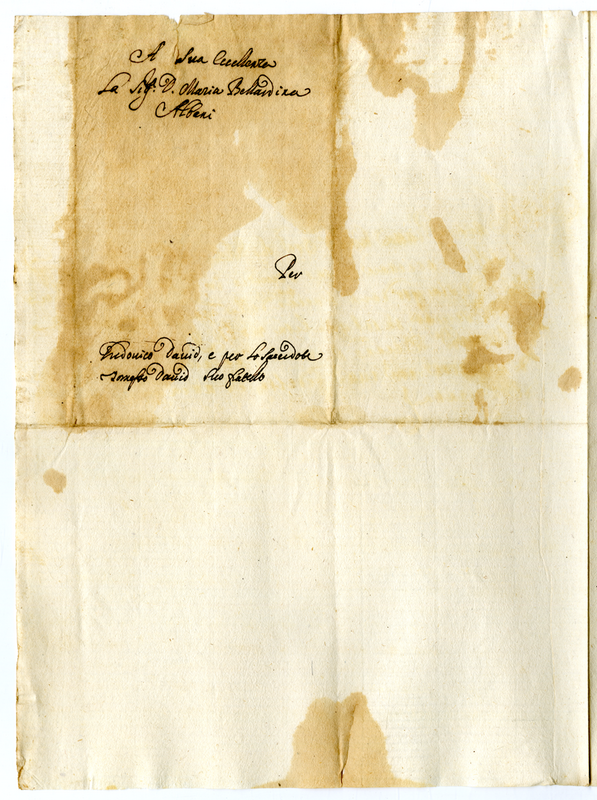 A Sua Eccellenza
La Sig.ra D. Maria Bernardina
Albani
Per
Ludovico David, e per lo
David suo fratello